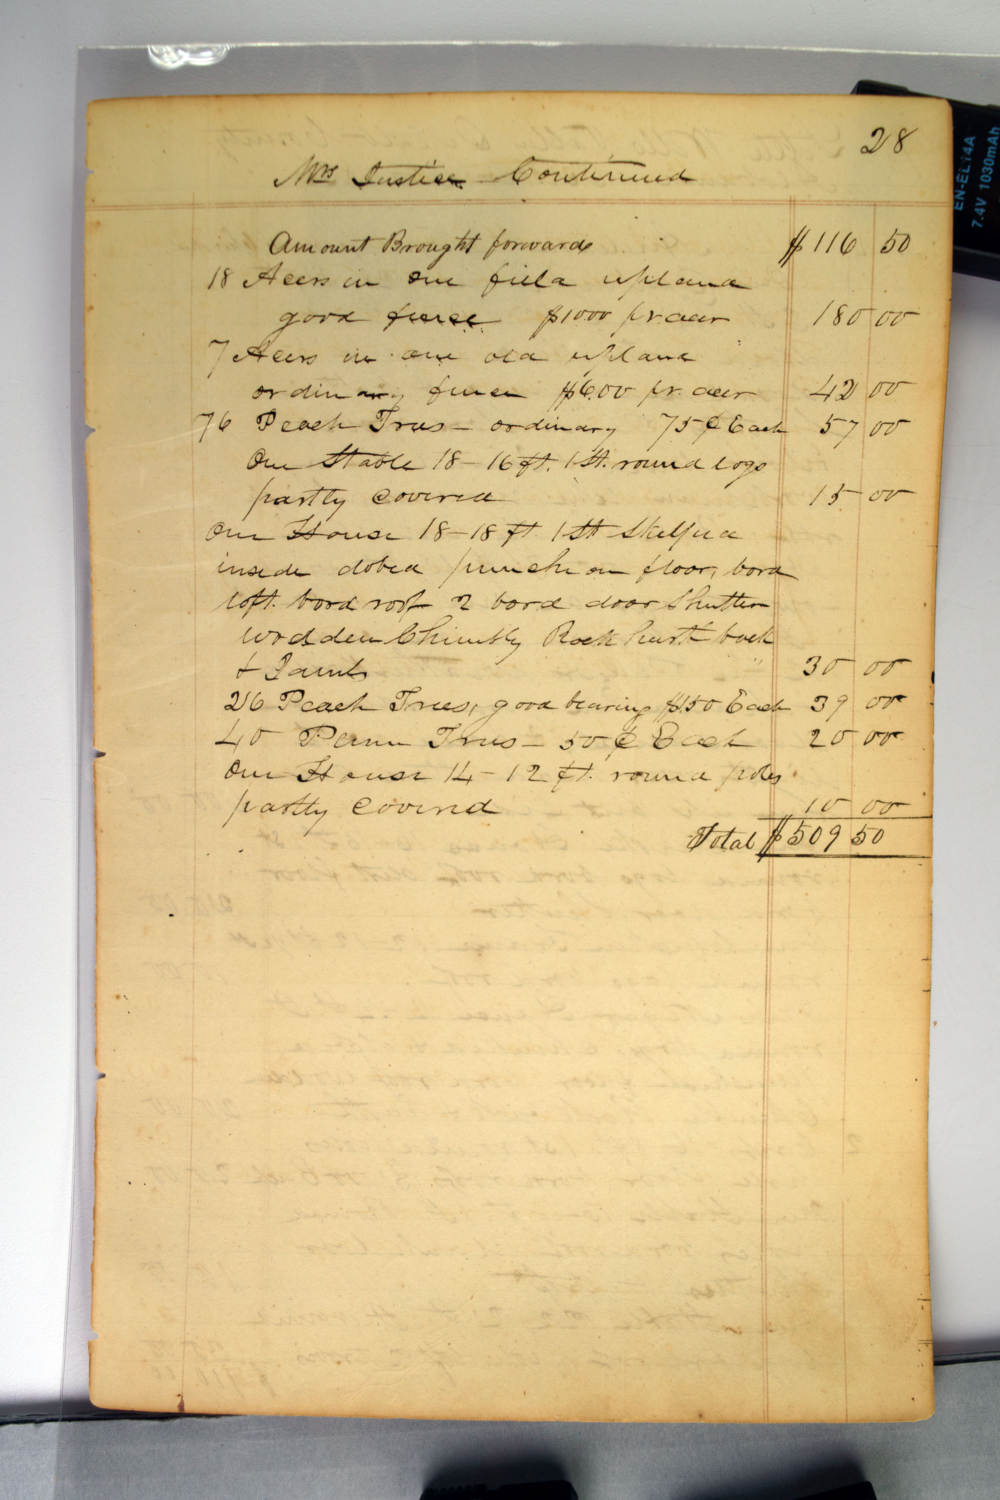 28
Mrs Justice Continued
Amount Brought forwards $116 50
18 Acers in one field upland
good fence $1000 pr acer 180 00
7 Acers in one old upland
ordinary fence $6.00 pr. acer 42 00
76 Peach Trees - ordinary 75¢ Each 57 00
One Stable 18-16 ft. 1 St. round logs
partly covered 15 00
One House 18-18 ft 1 St Skelped
inside dobed puncheon floor, bord
loft. bord roof 2 bord door Shutters
wooden Chimbly Rock hearth back
& Jambs " 30 00
26 Peach Trees, good bearing $1.50 Each 39 00
40 Trees - 50¢ Each 20 00
One House 14-12 ft. round poles
partly covered 10 00
Total $509 50
EN-EL14A
7.4V 1030mAh